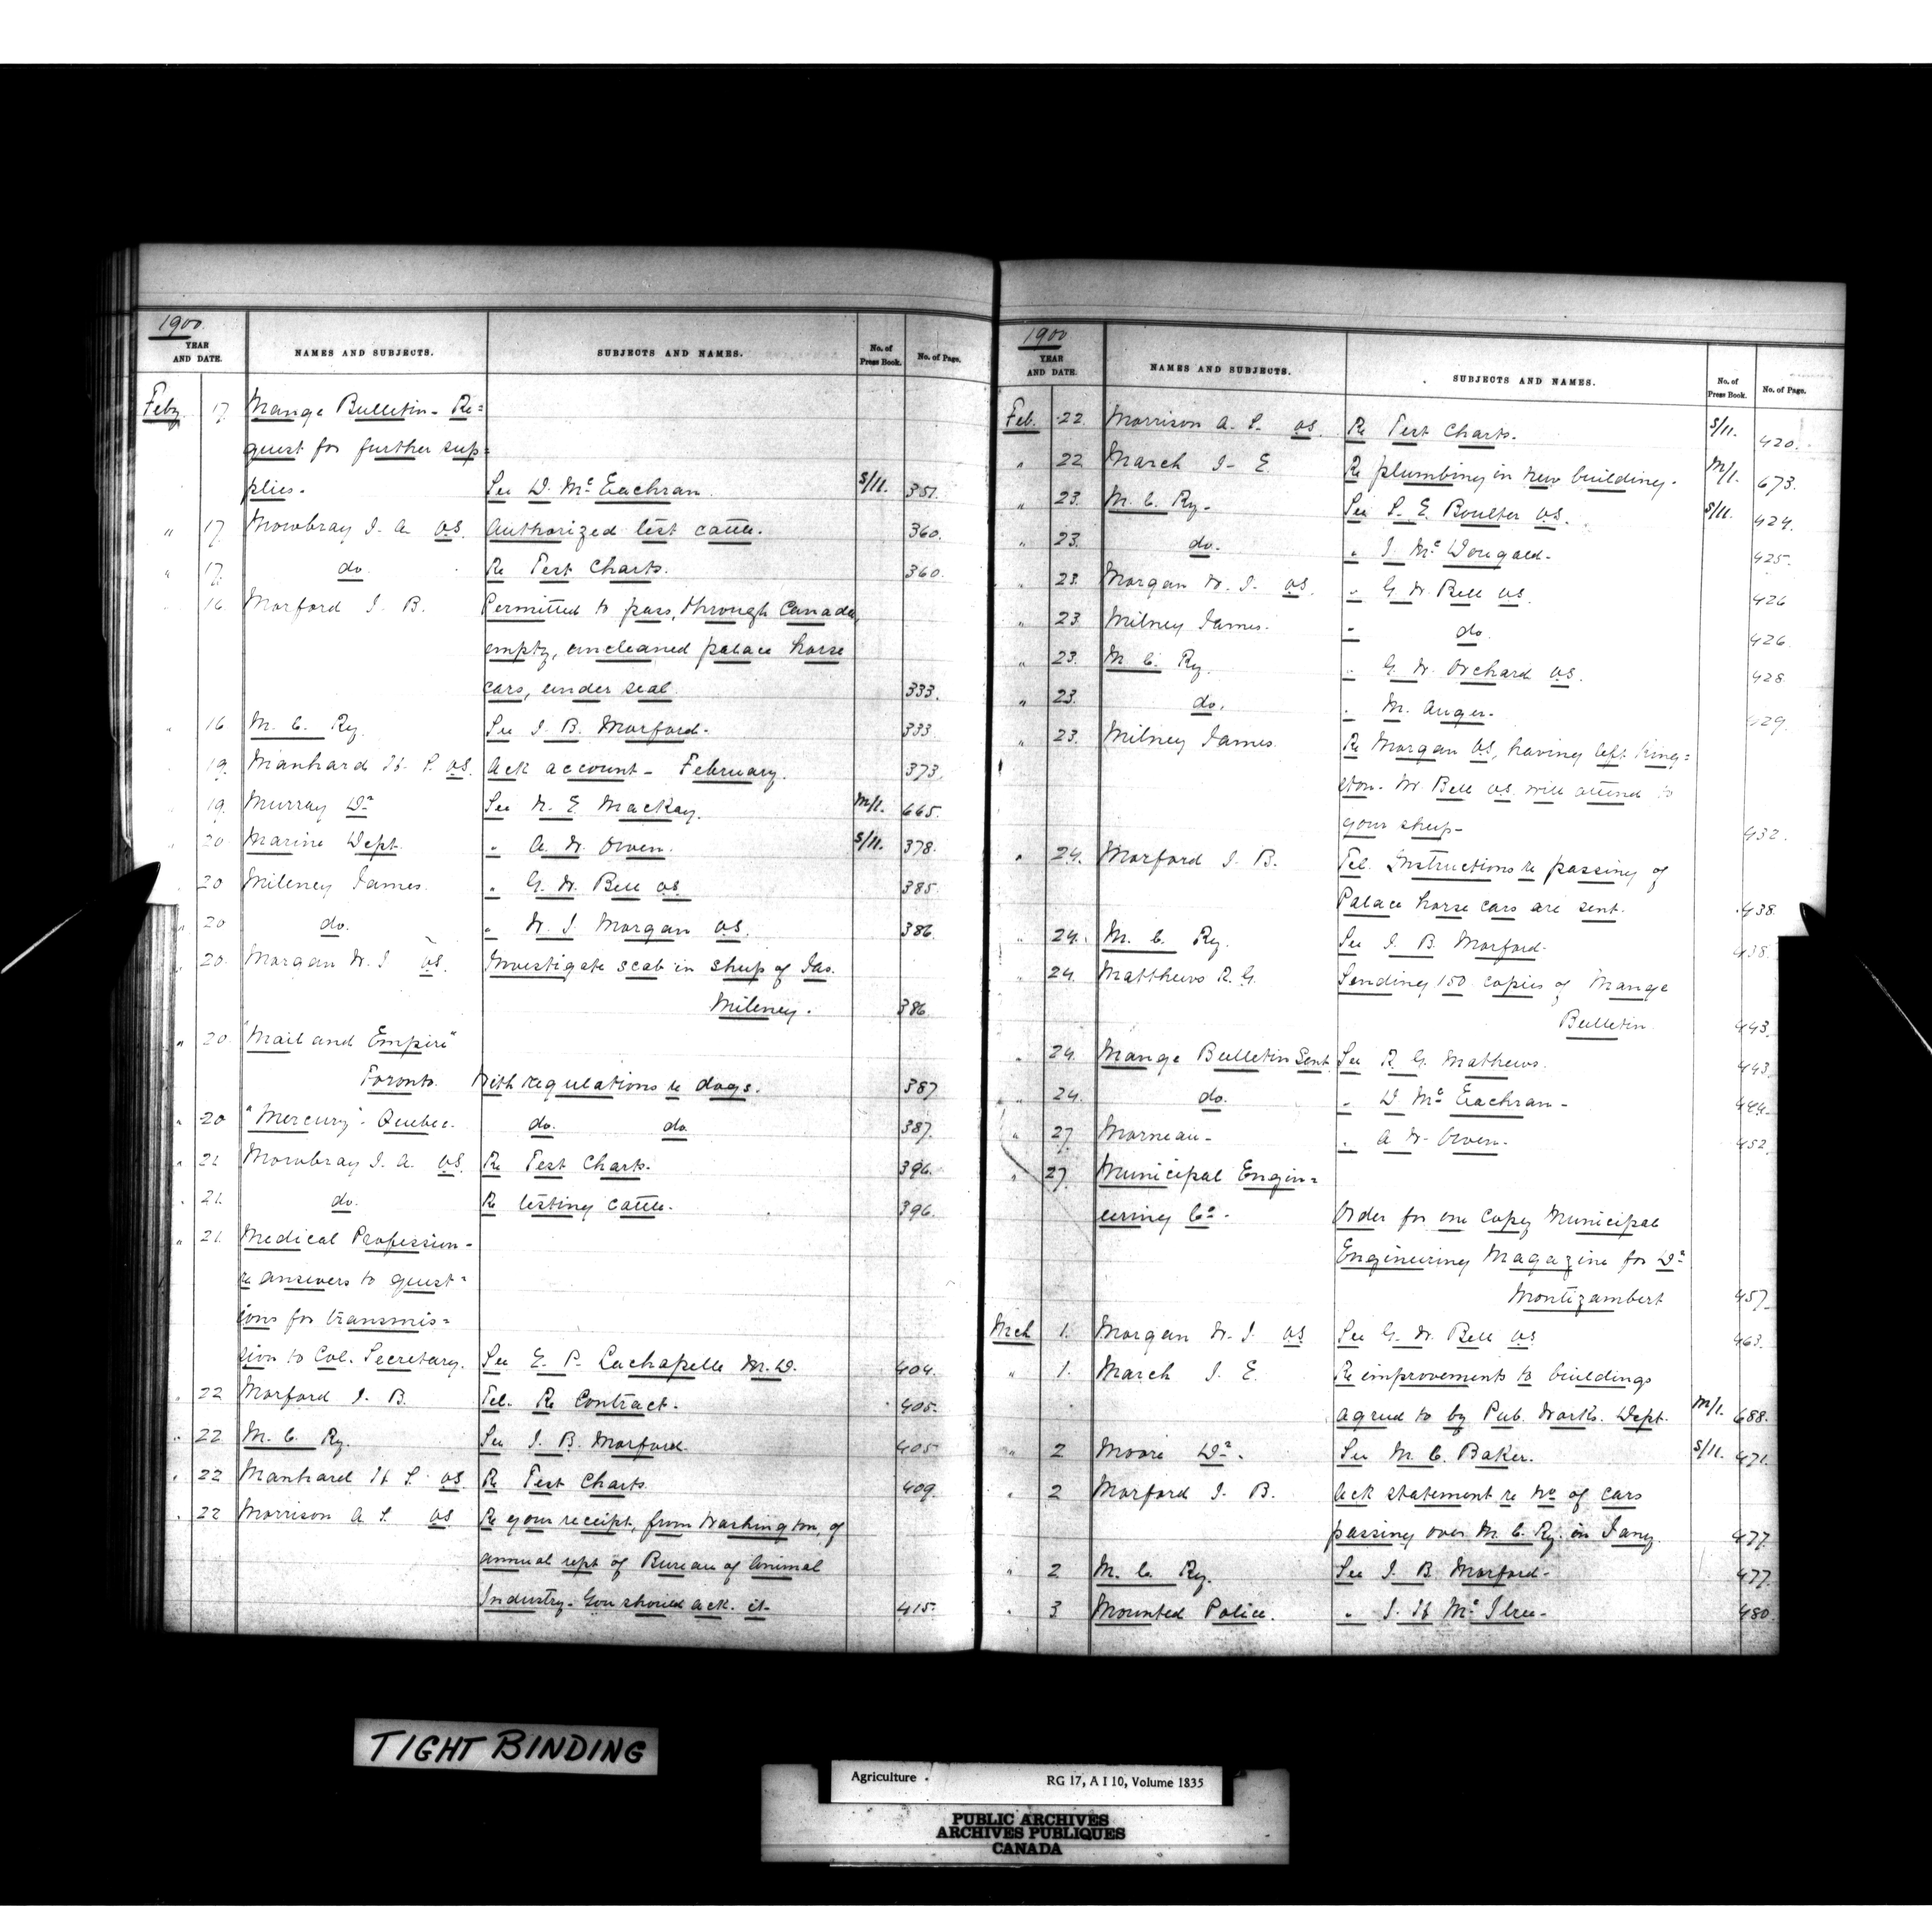 1900.
YEAR AND DATE. NAMES AND SUBJECTS. SUBJECTS AND NAMES. No. of Press Book. No. of Page.
Feby 17. Mange Bulletin - Re=
quest for further sup=
plies. See D. McEachran. S/11. 351.
" 17. Mowbray J. A. V.S. Authorized test cattle. 360.
" 17. do. Re Test Charts. 360.
" 16. Morford J. B. Permitted to pass, through Canada,
empty, uncleaned palace horse
cars, under seal. 333.
" 16 M. C. Ry. See J. B. Morford. 333
" 19. Manhard H. S. V.S. Ack account - February. 373.
" 19. Murray Dr See N. E. MacKay. M/1. 665.
" 20. Marine Dept. " A. W. Owen. S/11. 378.
" 20 Mileney James. " G. W. Bell V.S. 385.
" 20 do. " W. J. Morgan V.S. 386.
" 20. Morgan W. J V.S. Investigate scab in sheep of Jas.
Mileney. 386.
" 20 "Mail and Empire"
Toronto. With regulations re dogs. 387
" 20 "Mercury" - Quebec. do. do. 387.
" 21 Mowbray J. A. V.S. Re Test Charts. 396.
" 21. do. Re testing cattle. 396.
" 21. Medical Profession -
re answers to quest=
ions for transmis=
sion to Col. Secretary. See E. P. Lachapelle M.D. 404.
" 22 Morford J. B. Tel. Re Contract. 405.
" 22 M. C. Ry. See J. B. Morford. 405
" 22 Manhard H. S. V.S. Re Test Charts. 409.
" 22 Morrison A. S. V.S Re your receipt, from Washington, of
annual rept of Bureau of Animal
Industry. You should ack. it. 415.
1900
YEAR AND DATE. NAMES AND SUBJECTS. SUBJECTS AND NAMES. No. of Press Book. No. of Page.
Feb. 22. Morrison A. S. V.S. Re Test Charts. S/11. 420.
" 22 March J. E. Re plumbing in new building. M/1. 673.
" 23. M. C. Ry. See S. E. Boulter V.S. S/11. 424.
" 23. do. " J. McDougald. 425.
" 23 Morgan W. J. V.S. " G. W. Bell V.S. 426
" 23 Milney James. " do. 426.
" 23. M. C. Ry. " G. W. Orchard V.S. 428.
" 23. do. " M. Auger. 429.
" 23. Milney James. Re Morgan V.S., having left King=
ston. W. Bell V.S. will attend to
your sheep - 432.
" 24. Morford J. B. Tel. Instructions re passing of
Palace horse cars are sent. 438.
" 24. M. C. Ry. See J. B. Morford. 438.
" 24. Matthews R. G. Sending 150 copies of Mange
Bulletin. 443.
" 24. Mange Bulletin Sent. See R. G. Mathews. 443.
" 24. do. " D. McEachran - 444.
" 27 Morneau - " A. W. Owen. 452.
" 27. Municipal Engin=
eering Co. Order for one copy Municipal
Engineering Magazine for Dr
Montizambert 457.
Mch 1. Morgan W. J. V.S See G. W. Bell V.S 463.
" 1. March J. E. Re improvements to buildings
agreed to by Pub. Works. Dept. M/1. 688.
" 2 Moore Dr. See M. C. Baker. S/11. 471.
" 2 Morford J. B. Ack statement re No of cars
passing over M. C. Ry. in Jany. 477.
" 2 M. C. Ry. See J. B. Morford - 477.
" 3 Mounted Police. " J. H. McIlree - 480.
TIGHT BINDING
Agriculture. RG 17, A I 10, Volume 1835
PUBLIC ARCHIVES
ARCHIVES PUBLIQUES
CANADA